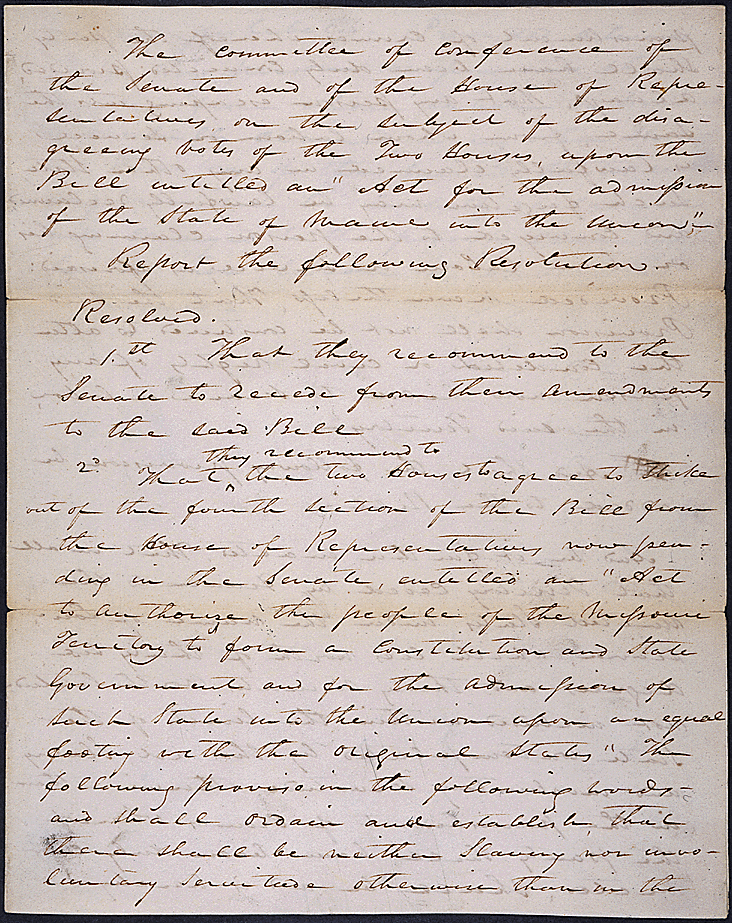 The committee of conference of
the Senate and of the House of Repre-
sentatives, on the subject of the disa-
greeing votes of the Two Houses, upon the
Bill entitled an "Act for the admission
of the State of Maine into the Union,"
Report the following Resolution.
Resolved.
1.st That they recommend to the
Senate to recede from their amendments
to the said Bill
they recommend to
2.d That ‸ the two Houses to agree to strike
out of the fourth section of the Bill from
the House of Representatives now pen-
ding in the Senate, entitled an "Act
to authorize the people of the Missouri
Territory to form a Constitution and State
Government and for the admission of
such State into the Union upon an equal
footing with the original States" The
following proviso in the following words-
and shall ordain and establish, that
there shall be neither Slavery nor invo-
luntary Servitude otherwise than in the